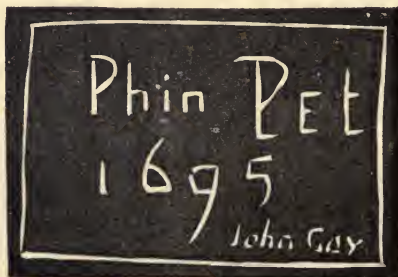 Phin PEt
1695
John Gay